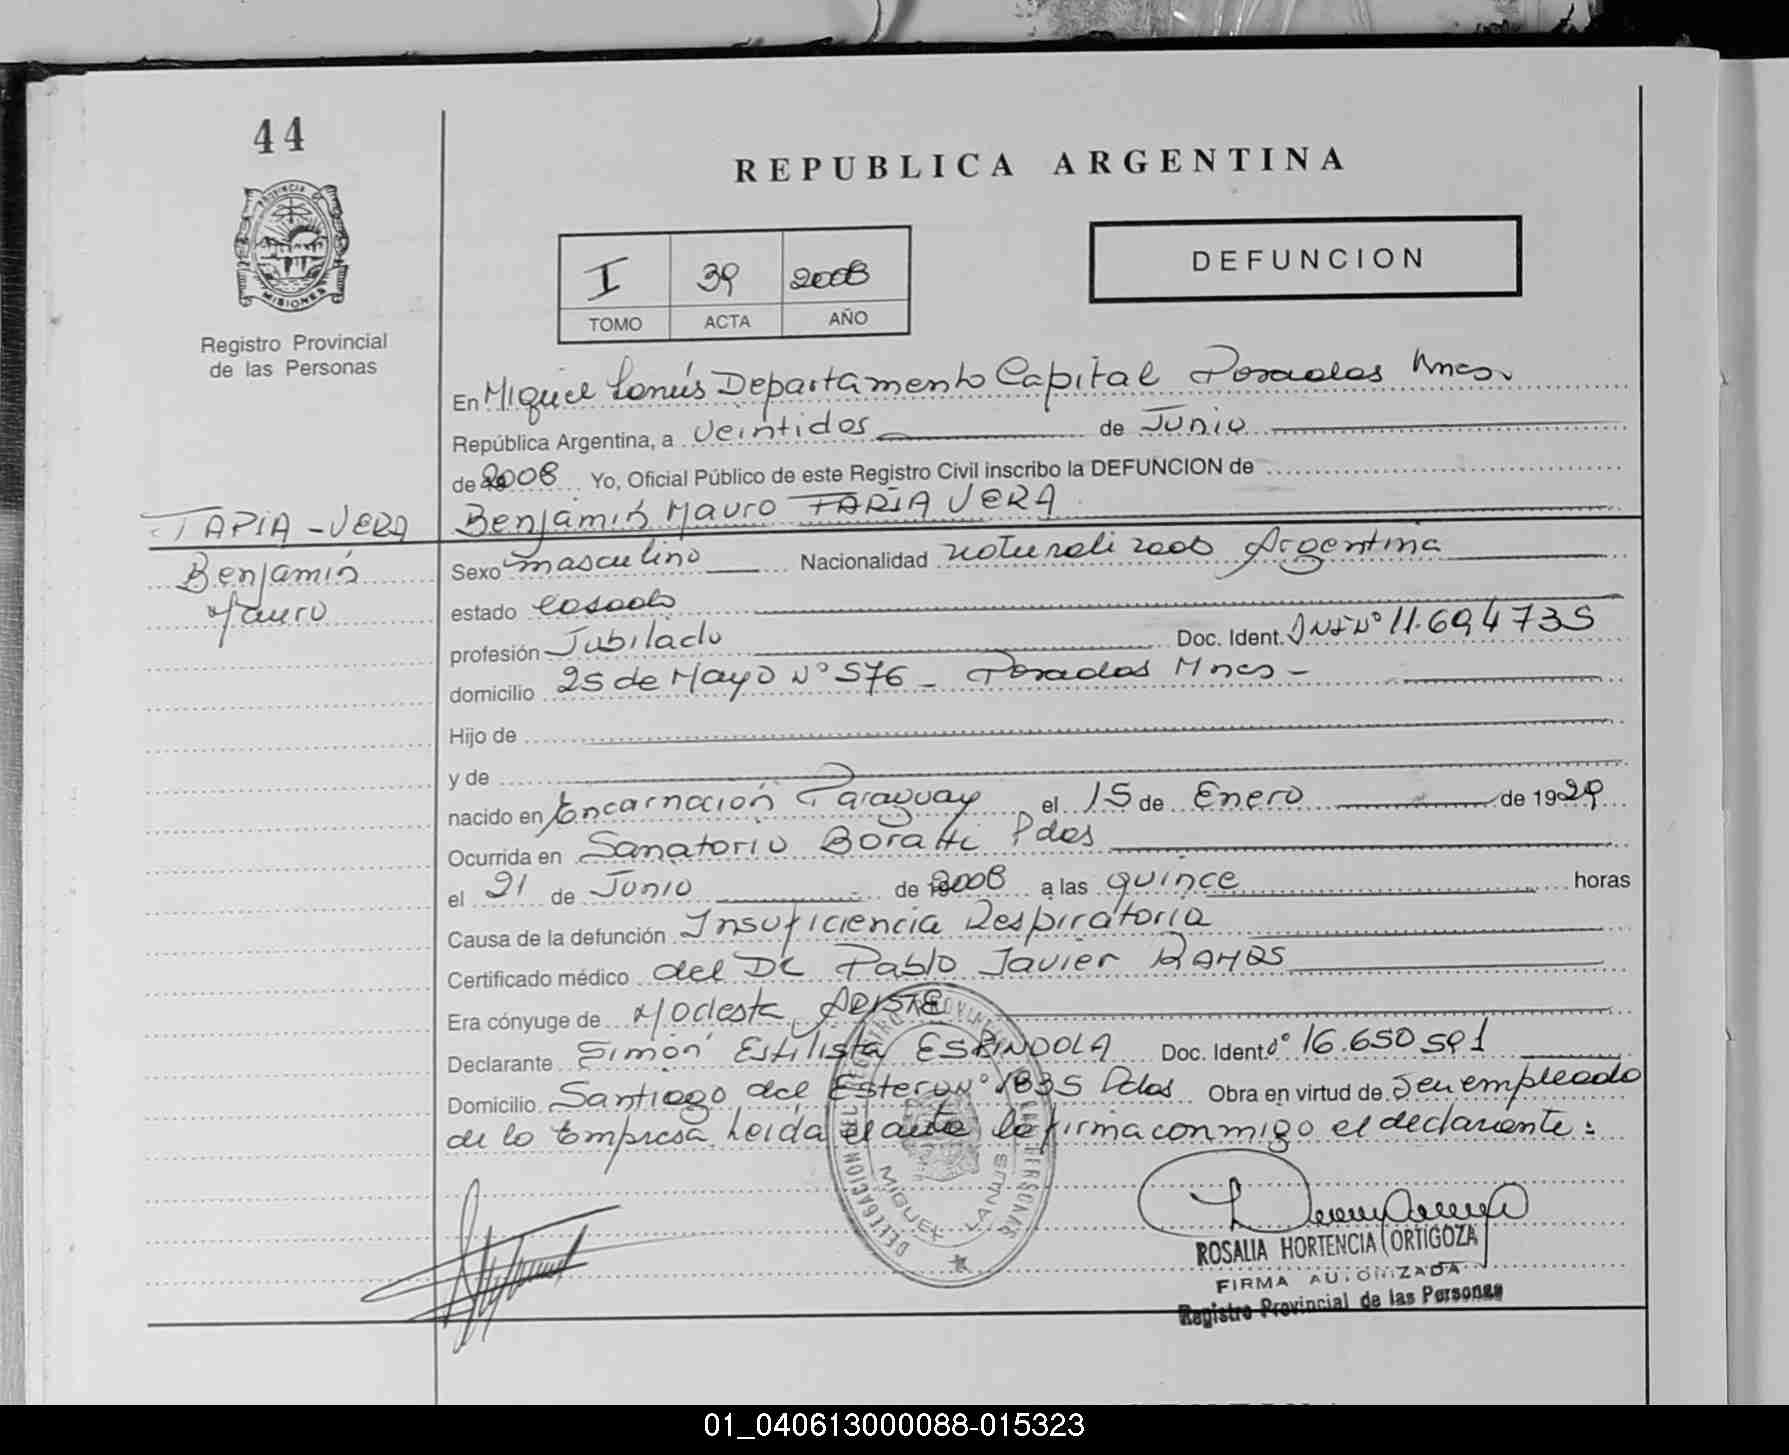 44
REPUBLICA ARGENTINA
PROVINCIA D
MISIONES
Registro Provincial
de las Personas
I 39 2008
TOMO ACTA AÑO
DEFUNCION
En Miguel Lanús Departamento Capital Posadas Mnes.
República Argentina, a veintidos de Junio
de 2008 Yo, Oficial Público de este Registro Civil inscribo la DEFUNCION de
TAPIA-VERA Benjamín Mauro TAPIA VERA
Benjamín
Mauro
Sexo masculino Nacionalidad naturalizado Argentina
estado casado
profesión Jubilado Doc. Ident. DNI Nº 11.694735
domicilio 25 de Mayo Nº 576 - Posadas Mnes -
Hijo de
y de
nacido en Encarnación Paraguay el 15 de Enero de 1929
Ocurrida en Sanatorio Boratti Pdas
el 21 de Junio de 2008 a las quince horas
Causa de la defunción Insuficiencia Respiratoria
Certificado médico del Dr Pablo Javier RAMOS
Era cónyuge de Modesta
Declarante Simón Estilista ESPINDOLA Doc. Ident Nº 16.650591
Domicilio Santiago del Estero Nº 1835 Pdas Obra en virtud de Ser empleado
de la Empresa Leída el acta la firma conmigo el declarante:
DELEGACION REGISTRO PROVINCIAL DE LAS PERSONAS
MIGUEL LANUS
ROSALIA HORTENCIA ORTIGOZA
FIRMA AUTORIZADA
Registro Provincial de las Personas
01_040613000088-015323